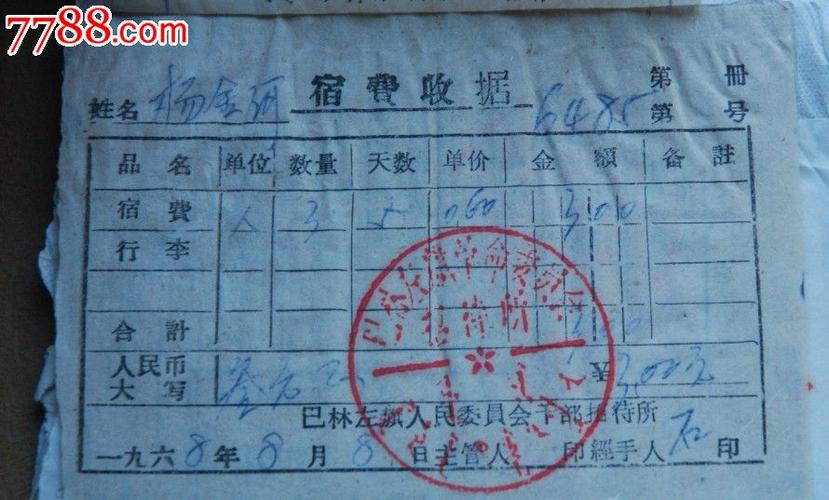 7788.com
宿費收据
姓名 杨金 6485 第 冊
第 号
品名 单位 数量 天数 单价 金額 备註
宿費 人 3 5 060 3 00
行李
合計 3 00
人民币大写 叁元 3.00元
巴林左旗人民委員会干部招待所
一九六8年8月8日 主管人 印 經手人 石 印
巴林左旗革命委員会
招待所